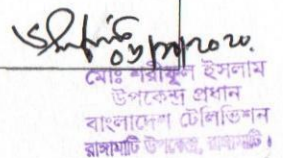 মোঃ শরীফুল ইসলাম
উপকেন্দ্র প্রধান
বাংলাদেশ টেলিভিশন
রাঙ্গামাটি উপকেন্দ্র, রাঙ্গামাটি।